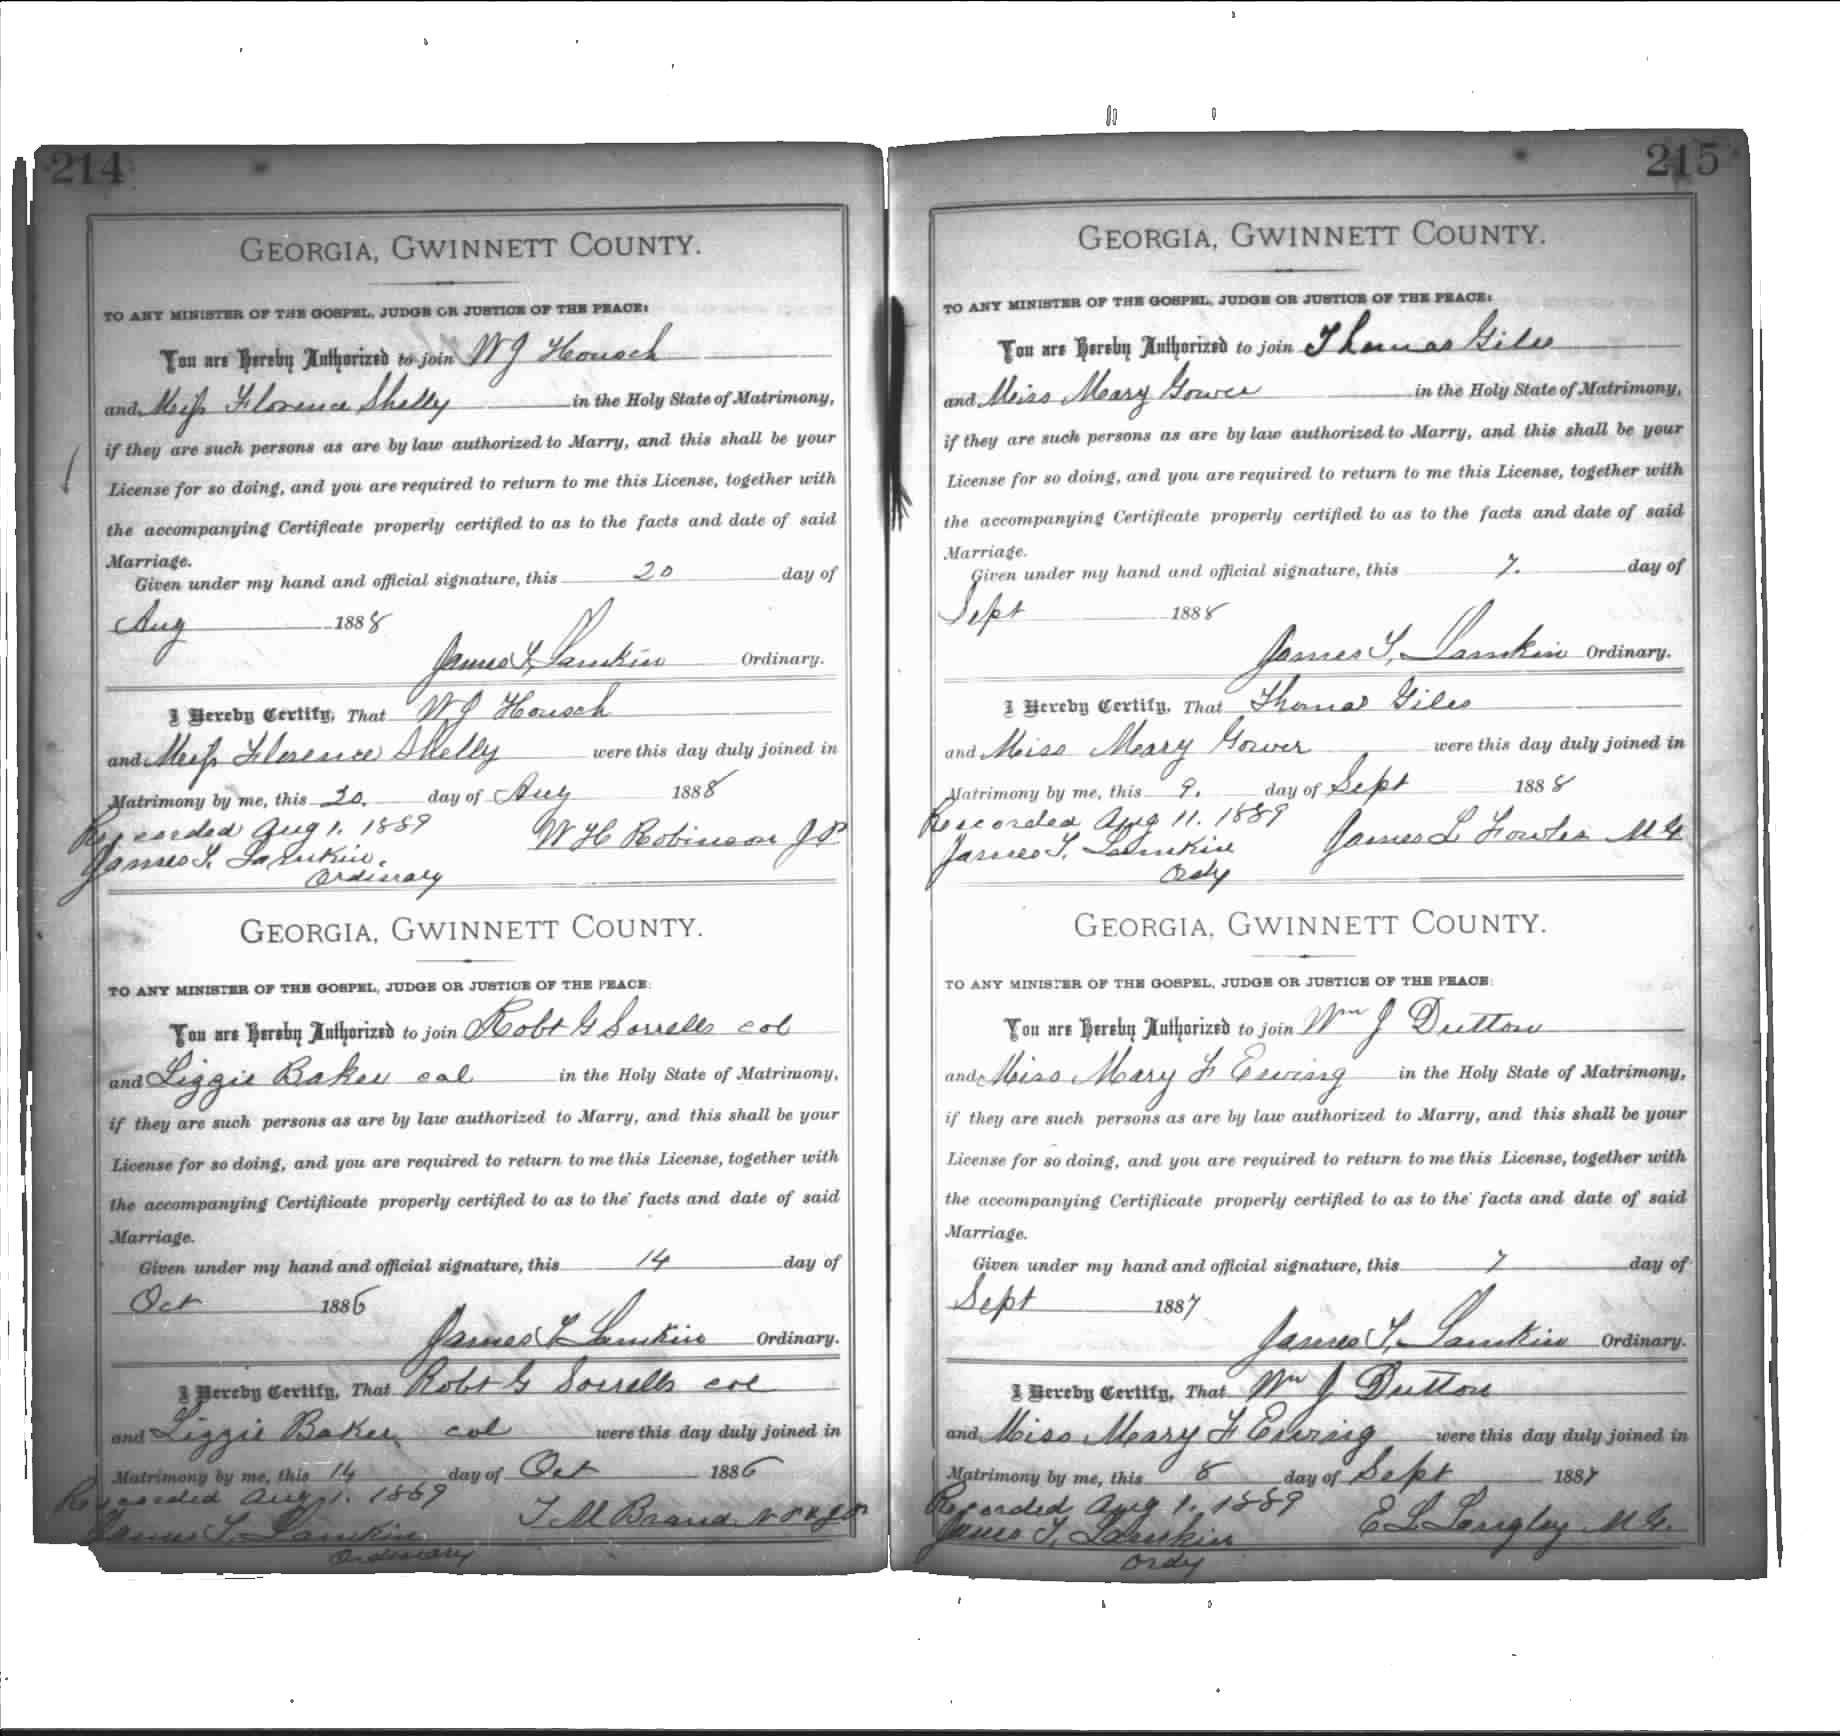 214
GEORGIA, GWINNETT COUNTY.
TO ANY MINISTER OF THE GOSPEL, JUDGE OR JUSTICE OF THE PEACE:
You are Hereby Authorized to join W J Housch
and Miss Florence Shelly in the Holy State of Matrimony,
if they are such persons as are by law authorized to Marry, and this shall be your
License for so doing, and you are required to return to me this License, together with
the accompanying Certificate properly certified to as to the facts and date of said
Marriage.
Given under my hand and official signature, this 20 day of
Aug 1888
James T. Lamkin Ordinary.
I Hereby Certify, That W J Housch
and Miss Florence Shelly were this day duly joined in
Matrimony by me, this 20. day of Aug 1888
Recorded Aug 1. 1889 W H Robinson J P
James T. Lamkin.
Ordinary
GEORGIA, GWINNETT COUNTY.
TO ANY MINISTER OF THE GOSPEL, JUDGE OR JUSTICE OF THE PEACE:
You are Hereby Authorized to join Robt G Sorrells col
and Lizzie Baker col in the Holy State of Matrimony,
if they are such persons as are by law authorized to Marry, and this shall be your
License for so doing, and you are required to return to me this License, together with
the accompanying Certifiicate properly certified to as to the facts and date of said
Marriage.
Given under my hand and official signature, this 14 day of
Oct 1886
James T. Lamkin Ordinary.
I Hereby Certify, That Robt G Sorrells col
and Lizzie Baker col were this day duly joined in
Matrimony by me, this 14 day of Oct 1886
Recorded Aug 1. 1889 T M Brand
James T. Lamkin
Ordinary
215
GEORGIA, GWINNETT COUNTY.
TO ANY MINISTER OF THE GOSPEL, JUDGE OR JUSTICE OF THE PEACE:
You are Hereby Authorized to join Thomas Giles
and Miss Mary Gower in the Holy State of Matrimony,
if they are such persons as are by law authorized to Marry, and this shall be your
License for so doing, and you are required to return to me this License, together with
the accompanying Certificate properly certified to as to the facts and date of said
Marriage.
Given under my hand and official signature, this 7. day of
Sept 1888
James T. Lamkin Ordinary.
I Hereby Certify, That Thomas Giles
and Miss Mary Gower were this day duly joined in
Matrimony by me, this 9. day of Sept 1888
Recorded Aug 11. 1889 James L Fowler M G
James T. Lamkin
Ordy
GEORGIA, GWINNETT COUNTY.
TO ANY MINISTER OF THE GOSPEL, JUDGE OR JUSTICE OF THE PEACE:
You are Hereby Authorized to join Wm J Dutton
and Miss Mary F Ewing in the Holy State of Matrimony,
if they are such persons as are by law authorized to Marry, and this shall be your
License for so doing, and you are required to return to me this License, together with
the accompanying Certifiicate properly certified to as to the facts and date of said
Marriage.
Given under my hand and official signature, this 7 day of
Sept 1887
James T. Lamkin Ordinary.
I Hereby Certify, That Wm J Dutton
and Miss Mary F Ewing were this day duly joined in
Matrimony by me, this 8 day of Sept 1887
Recorded Aug 1. 1889 E L Langley M G.
James T. Lamkin
Ordy